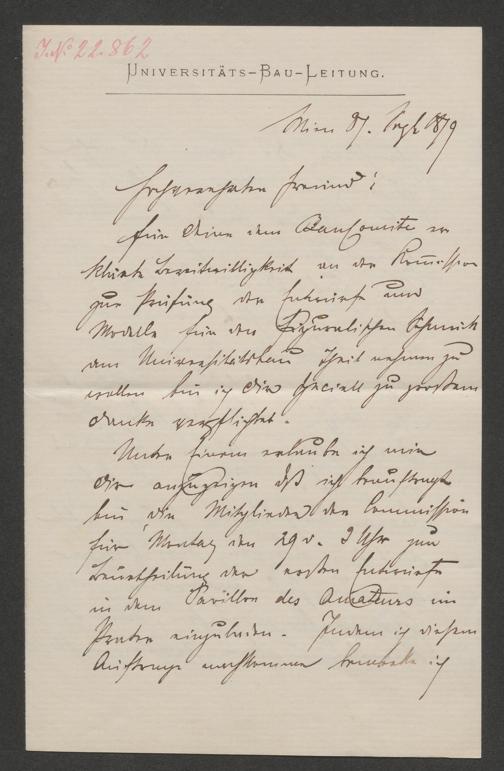 J.No 22.862
UNIVERSITÄTS-BAU-LEITUNG.
Wien 27. Sept 1879
Hochverehrter Freund!
Für Deine dem BauComite er
klärte Bereitwilligkeit an der Kom̅ission
zur Prüfung der Entwürfe und
Modelle für den Figuralischen Schmuck
am Universitätsbau Theil nehmen zu
wollen bin ich Dir speciell zu großem
Danke verpflichtet.
Unter Einem erlaube ich mir
Dir anzuzeigen dß ich beauftragt
bin die Mitglieder der Commission
für Montag den 29 d. 9 Uhr zur
Beurtheilung der ersten Entwürfe
in dem Pavillon des Amateurs im
Prater einzuladen. Indem ich diesem
Auftrage nachkomme bemerke ich